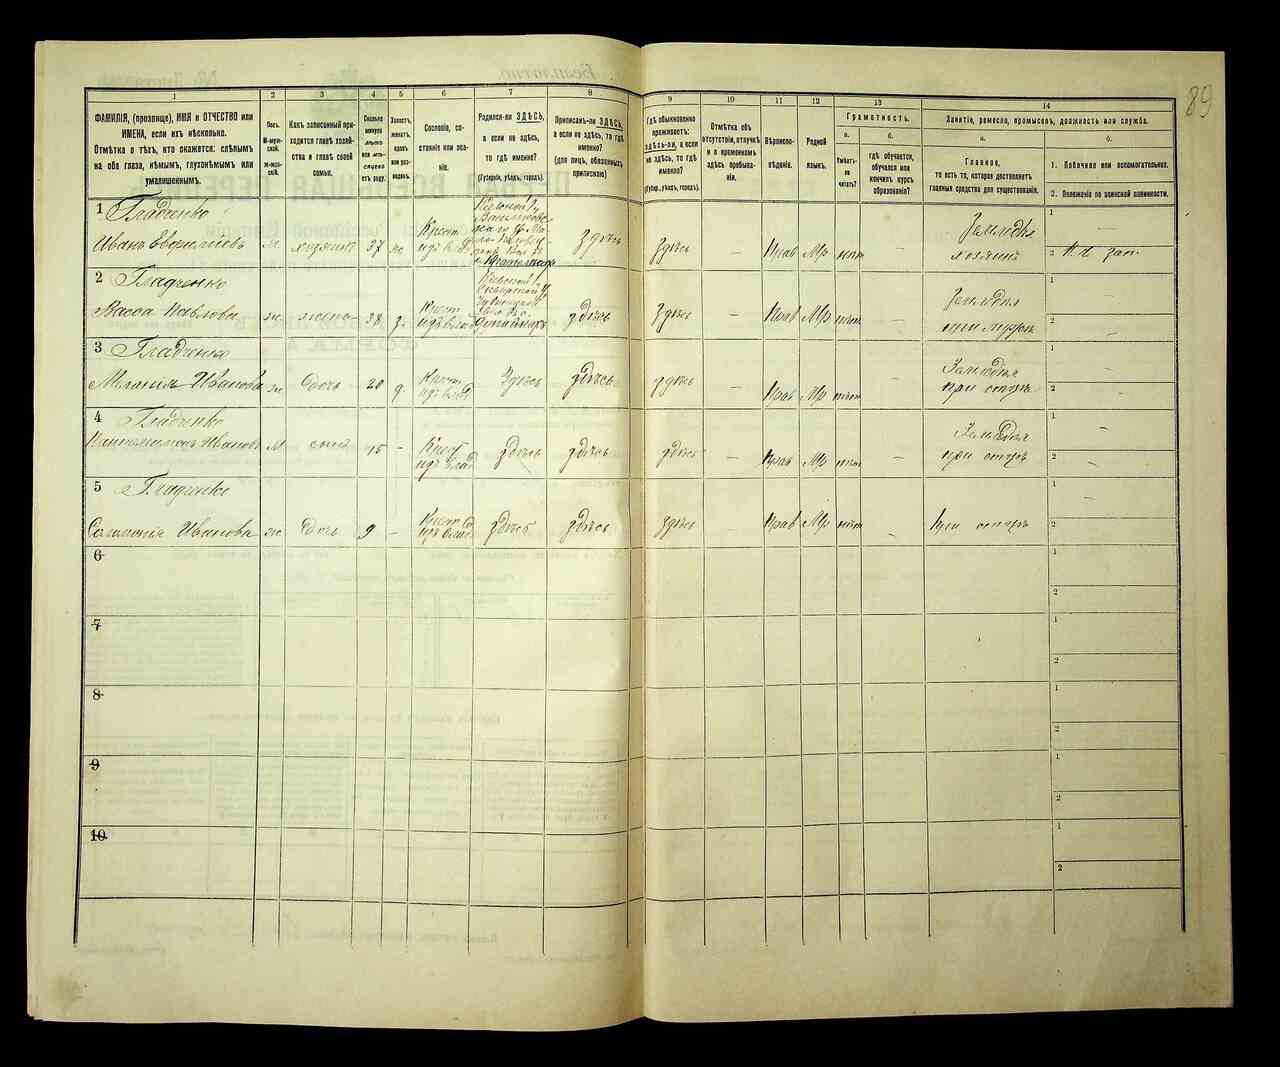 89
1 2 3 4 5 6 7 8 9 10 11 12 13 14
ФАМИЛІЯ, (прозвище), ИМЯ и ОТЧЕСТВО или ИМЕНА, если ихъ нѣсколько.
Отмѣтка о тѣхъ, кто окажется: слѣпымъ на оба глаза, нѣмымъ, глухонѣмымъ или умалишеннымъ.
Полъ.
М-мужской.
ж-женскій.
Какъ записанный приходится главѣ хозяйства и главѣ своей семьи.
Сколько минуло лѣтъ или мѣсяцевъ отъ роду.
Холостъ, женатъ, вдовъ или разведенъ.
Сословіе, состояніе или званіе.
Родился-ли ЗДѢСЬ, а если не здѣсь, то гдѣ именно?
(Губернія, уѣздъ, городъ).
Приписанъ-ли ЗДѢСЬ, а если не здѣсь, то гдѣ именно?
(для лицъ, обязанныхъ припискою)
Гдѣ обыкновенно проживаетъ: ЗДѢСЬ-ли, а если не здѣсь, то гдѣ именно?
(Губер., уѣздъ, городъ).
Отмѣтка объ отсутствіи, отлучкѣ и о временномъ здѣсь пребываніи.
Вѣроисповѣданіе.
Родной языкъ.
Грамотность.
а. б.
Умѣетъ-ли читать?
гдѣ обучается, обучался или кончилъ курсъ образованія?
Занятіе, ремесло, промыселъ, должность или служба.
а. б.
Главное,
то есть то, которое доставляетъ главныя средства для существованія.
1. Побочное или вспомогательное.
2. Положеніе по воинской повинности.
1 Гладченко
Иванъ М хозяинъ 37 ж Крест. здѣсь здѣсь — Прав Мр нѣт — Земледѣл. хозяинъ 1 — 2
2 Гладченко
Васса Павлова ж жена 38 з. Крест. Кіевской г. здѣсь здѣсь — Прав Мр нѣт — Земледѣл. при мужѣ 1 — 2 —
3 Гладченко
Меланія Иванова ж дочь 20 д. Крест. здѣсь здѣсь здѣсь — Прав Мр нѣт — Земледѣл. при отцѣ 1 — 2 —
4 Гладченко
Пантелимонъ Ивановъ М сынъ 15 — Крест. здѣсь здѣсь здѣсь — Прав Мр нѣт — Земледѣл. при отцѣ 1 — 2 —
5 Гладченко
Соломонія Иванова ж дочь 9 — Крест. здѣсь здѣсь здѣсь Прав Мр нѣт — при отцѣ 1 — 2 —
6 1 2
7 1 2
8 1 2
9 1 2
10 1 2